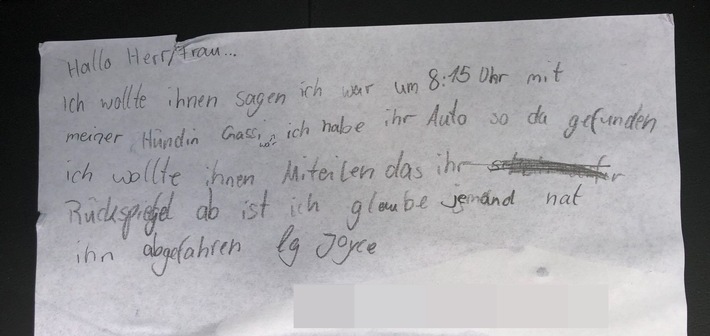 Hallo Herr/Frau...
Ich wollte ihnen sagen ich war um 8:15 Uhr mit
meiner Hündin Gassi, ich habe ihr Auto so da gefunden
ich wollte ihnen Miteilen das ihr
Rückspiegel ab ist ich glaube jemand hat
ihn abgefahren lg Joyce